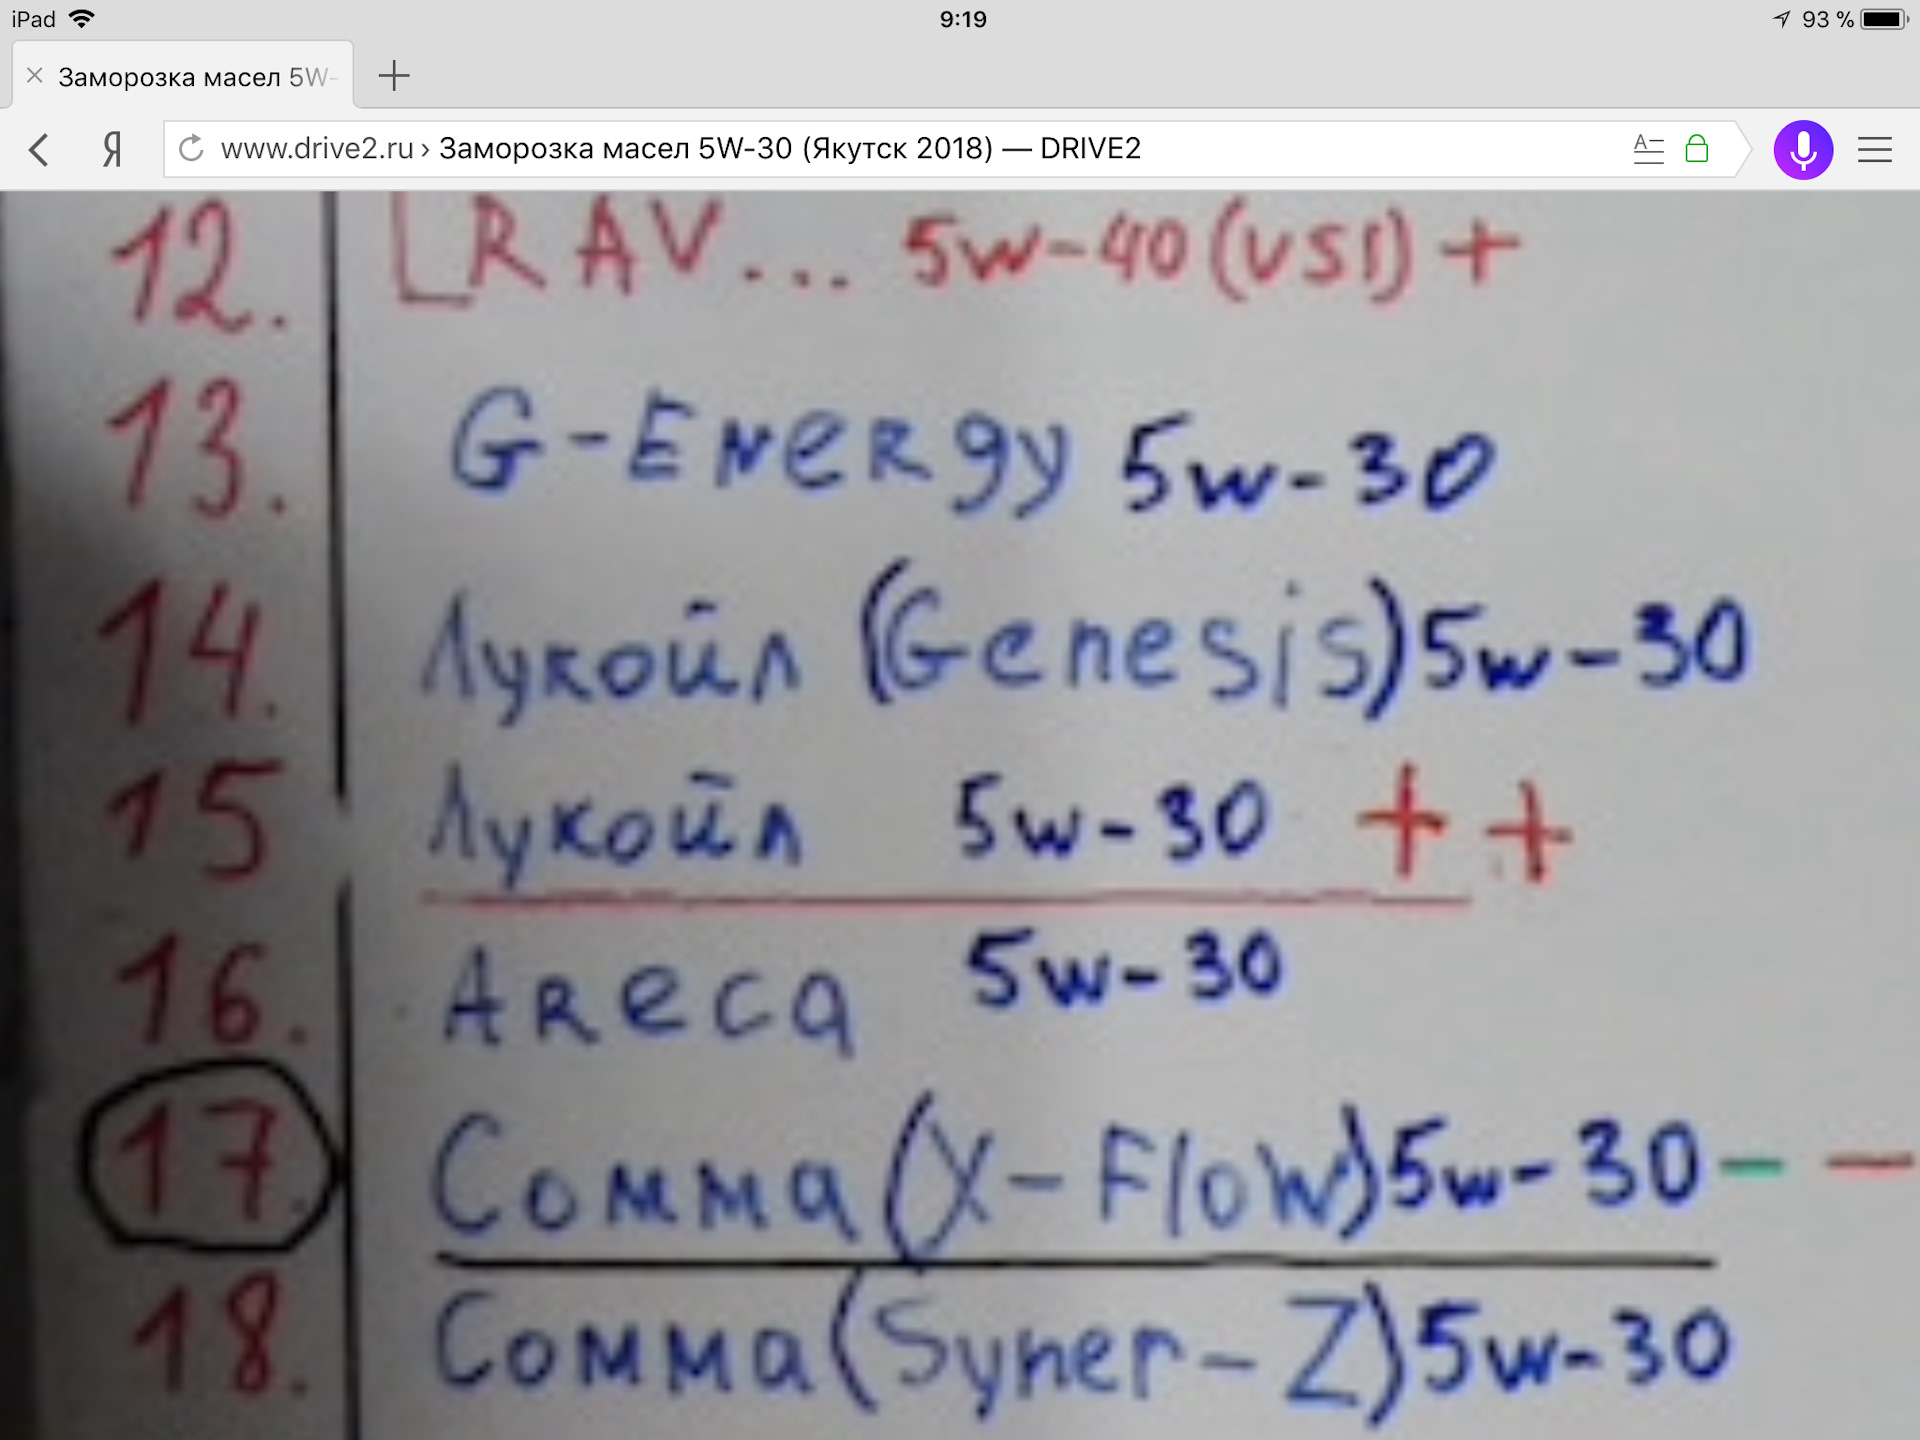 iPad 9:19 93 %
Заморозка масел 5W-
Я www.drive2.ru › Заморозка масел 5W-30 (Якутск 2018) — DRIVE2
12. RAV... 5w-40 (VSI) +
13. G-Energy 5w-30
14. Лукойл (Genesis) 5w-30
15 Лукойл 5w-30 + +
16. Areca 5w-30
17. Comma (X-Flow) 5w-30 - -
18. Comma (Syner-Z) 5w-30